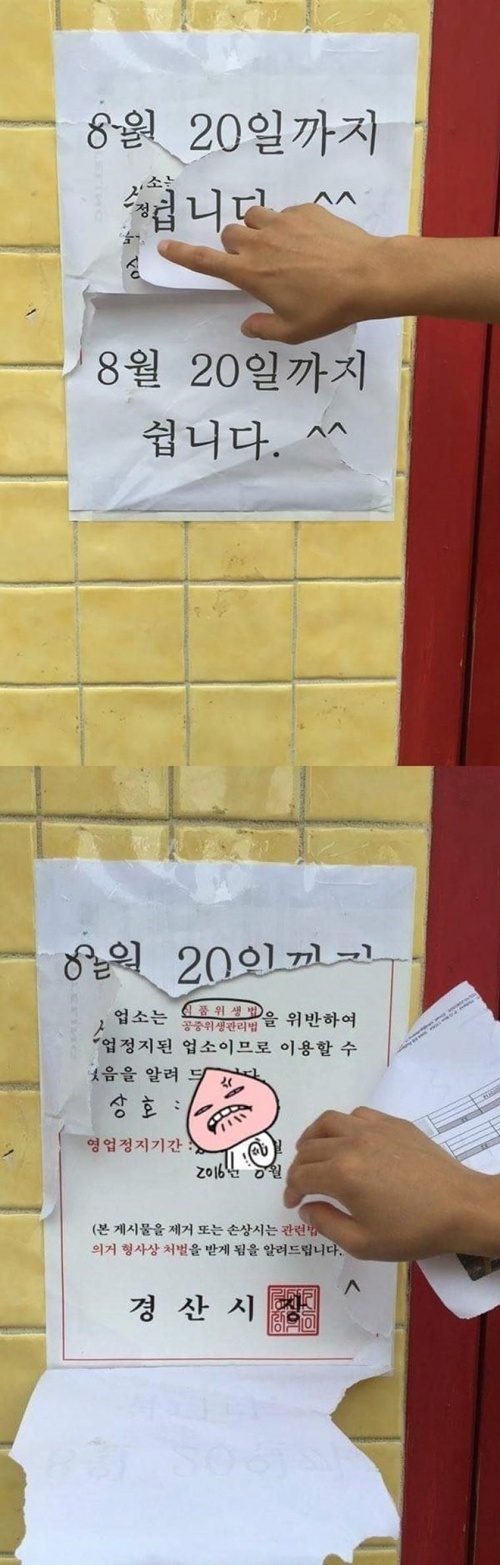 8월 20일까지
쉽니다. ^^
8월 20일까지
쉽니다. ^^
8월 20일까지
업소는 식품위생법
공중위생관리법 을 위반하여
업정지된 업소이므로 이용할 수
없음을 알려 드
상호 :
영업정지기간 :
2016년 8월
(본 게시물을 제거 또는 손상시는 관련법
의거 형사상 처벌을 받게 됨을 알려드립니다.
^
경 산 시 장